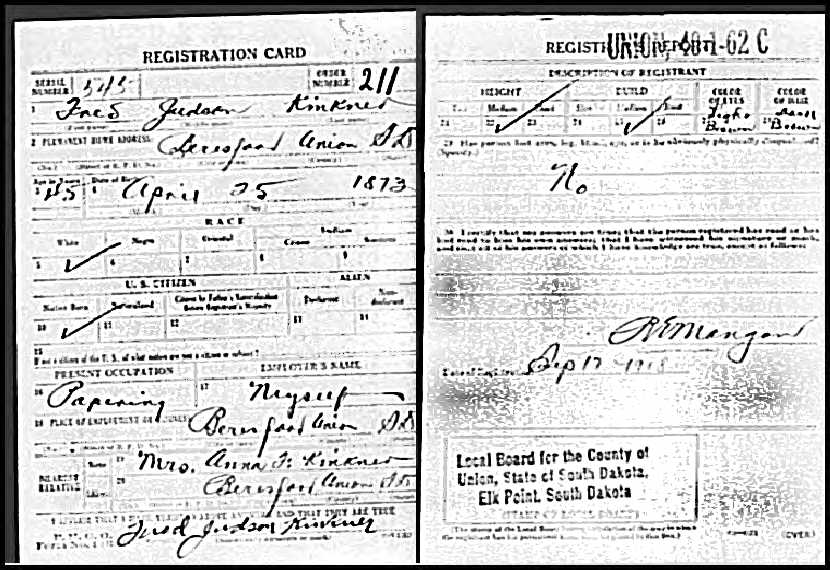 REGISTRATION CARD
SERIAL NUMBER
ORDER NUMBER 211
1 Fred Judson Kinkner
2 PERMANENT HOME ADDRESS:
Beresford Union S D
Age in Years Date of Birth
45 April 25 1873
RACE
White Negro Oriental Indian
Citizen
5 6 7 8 9
U. S. CITIZEN ALIEN
Native Born Naturalized Citizen by Father's Naturalization Before Registrant's Majority Declarant Non-declarant
10 11 12 13 14
15
If not a citizen of the U. S., of what nation are you a citizen or subject?
PRESENT OCCUPATION EMPLOYER'S NAME
16 Papering 17 Myself
18 PLACE OF EMPLOYMENT OR BUSINESS:
Beresford Union S D
NEAREST RELATIVE
Name 19 Mrs. Anna Kinkner
Address 20 Beresford Union S D
I AFFIRM THAT I HAVE VERIFIED ABOVE ANSWERS AND THAT THEY ARE TRUE
Fred Judson Kinkner
REGISTRAR'S REPORT
UNION, 40-1-62 C
DESCRIPTION OF REGISTRANT
HEIGHT BUILD COLOR OF EYES COLOR OF HAIR
Tall Medium Short Slender Medium Stout
21 22 23 24 25 26 27 28
Light Brown
Brown
29 Has person lost arm, leg, hand, eye, or is he obviously physically disqualified? (Specify.)
No
30 I certify that my answers are true; that the person registered has read or has had read to him his own answers; that I have witnessed his signature or mark, and that all of his answers of which I have knowledge are true, except as follows:
Date of Registration Sep 12 - 1918
Local Board for the County of
Union, State of South Dakota,
Elk Point, South Dakota
(STAMP OF LOCAL BOARD)
(The stamp of the Local Board having jurisdiction of the area in which the registrant has his permanent home shall be placed in this box.)
(OVER)